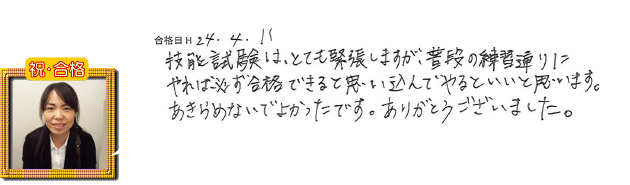 祝・合格
合格日 H 24.4.11
技能試験は、とても緊張しますが、普段の練習通りに
やれば必ず合格できると思い込んでやるといいと思います。
あきらめないでよかったです。ありがとうございました。